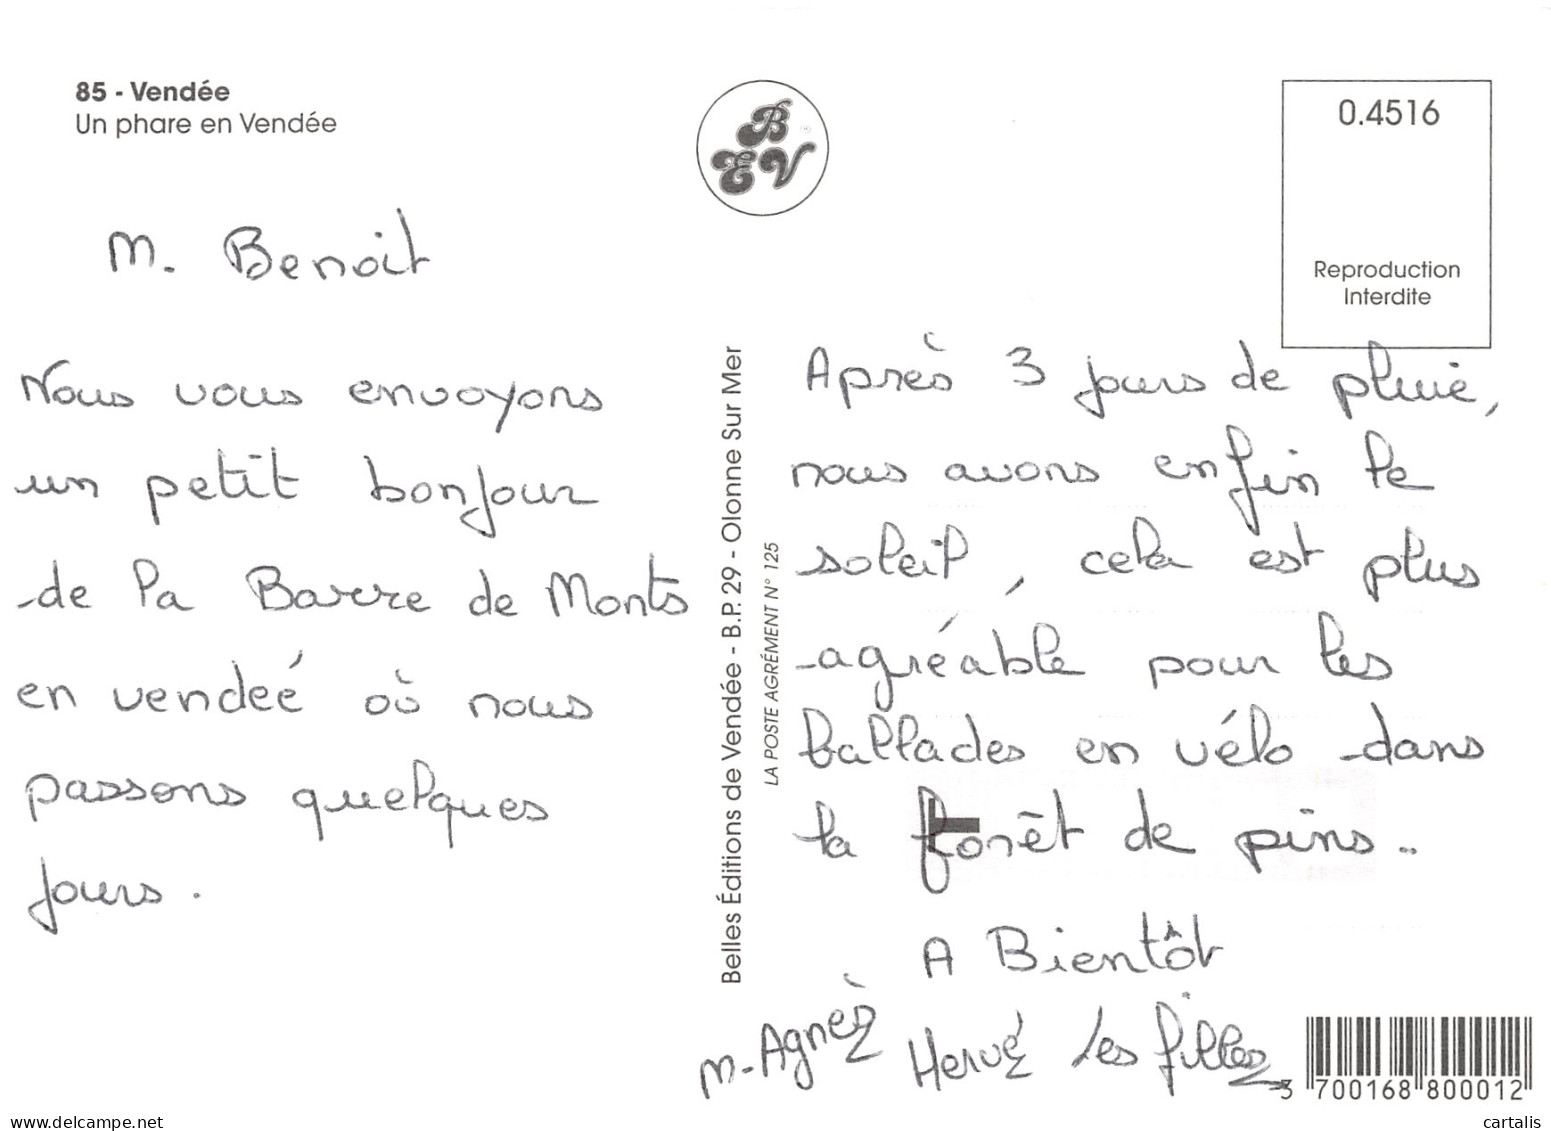 85 - Vendée
Un phare en Vendée
B
E V
0.4516
Reproduction
Interdite
M. Benoit
Nous vous envoyons
un petit bonjour
de la Barre de Monts
en vendeé où nous
passons quelques
jours.
Belles Éditions de Vendée - B.P. 29 - Olonne Sur Mer
LA POSTE AGRÉMENT N° 125
Après 3 jours de pluie,
nous avons enfin le
soleil, cela est plus
agréable pour les
ballades en vélo dans
la forêt de pins..
A Bientôt
M-Agnès Hervé Les filles
3 700168 800012
delcampe.net
cartalis